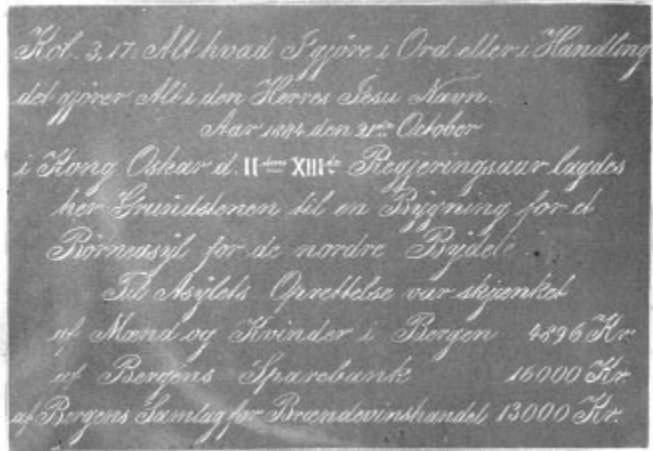 Kol. 3, 17. Alt hvad I gjøre i Ord eller i Handling
det gjører Alt i den Herres Jesu Navn.
Aar 1884 den 21de October
i Kong Oskar d. IIdens XIIIde Regjeringsaar lagdes
her Grundstenen til en Bygning for et
Børneasyl for de nordre Bydele
Til Asylets Oprettelse var skjænket
af Mænd og Kvinder i Bergen 4896 Kr
af Bergens Sparebank 16000 Kr
af Bergens Samlag for Brændevinshandel 13000 Kr.